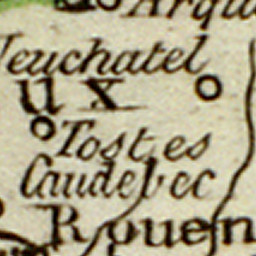 Neuchatel
ux
Tostes
Caudebec
Rouen